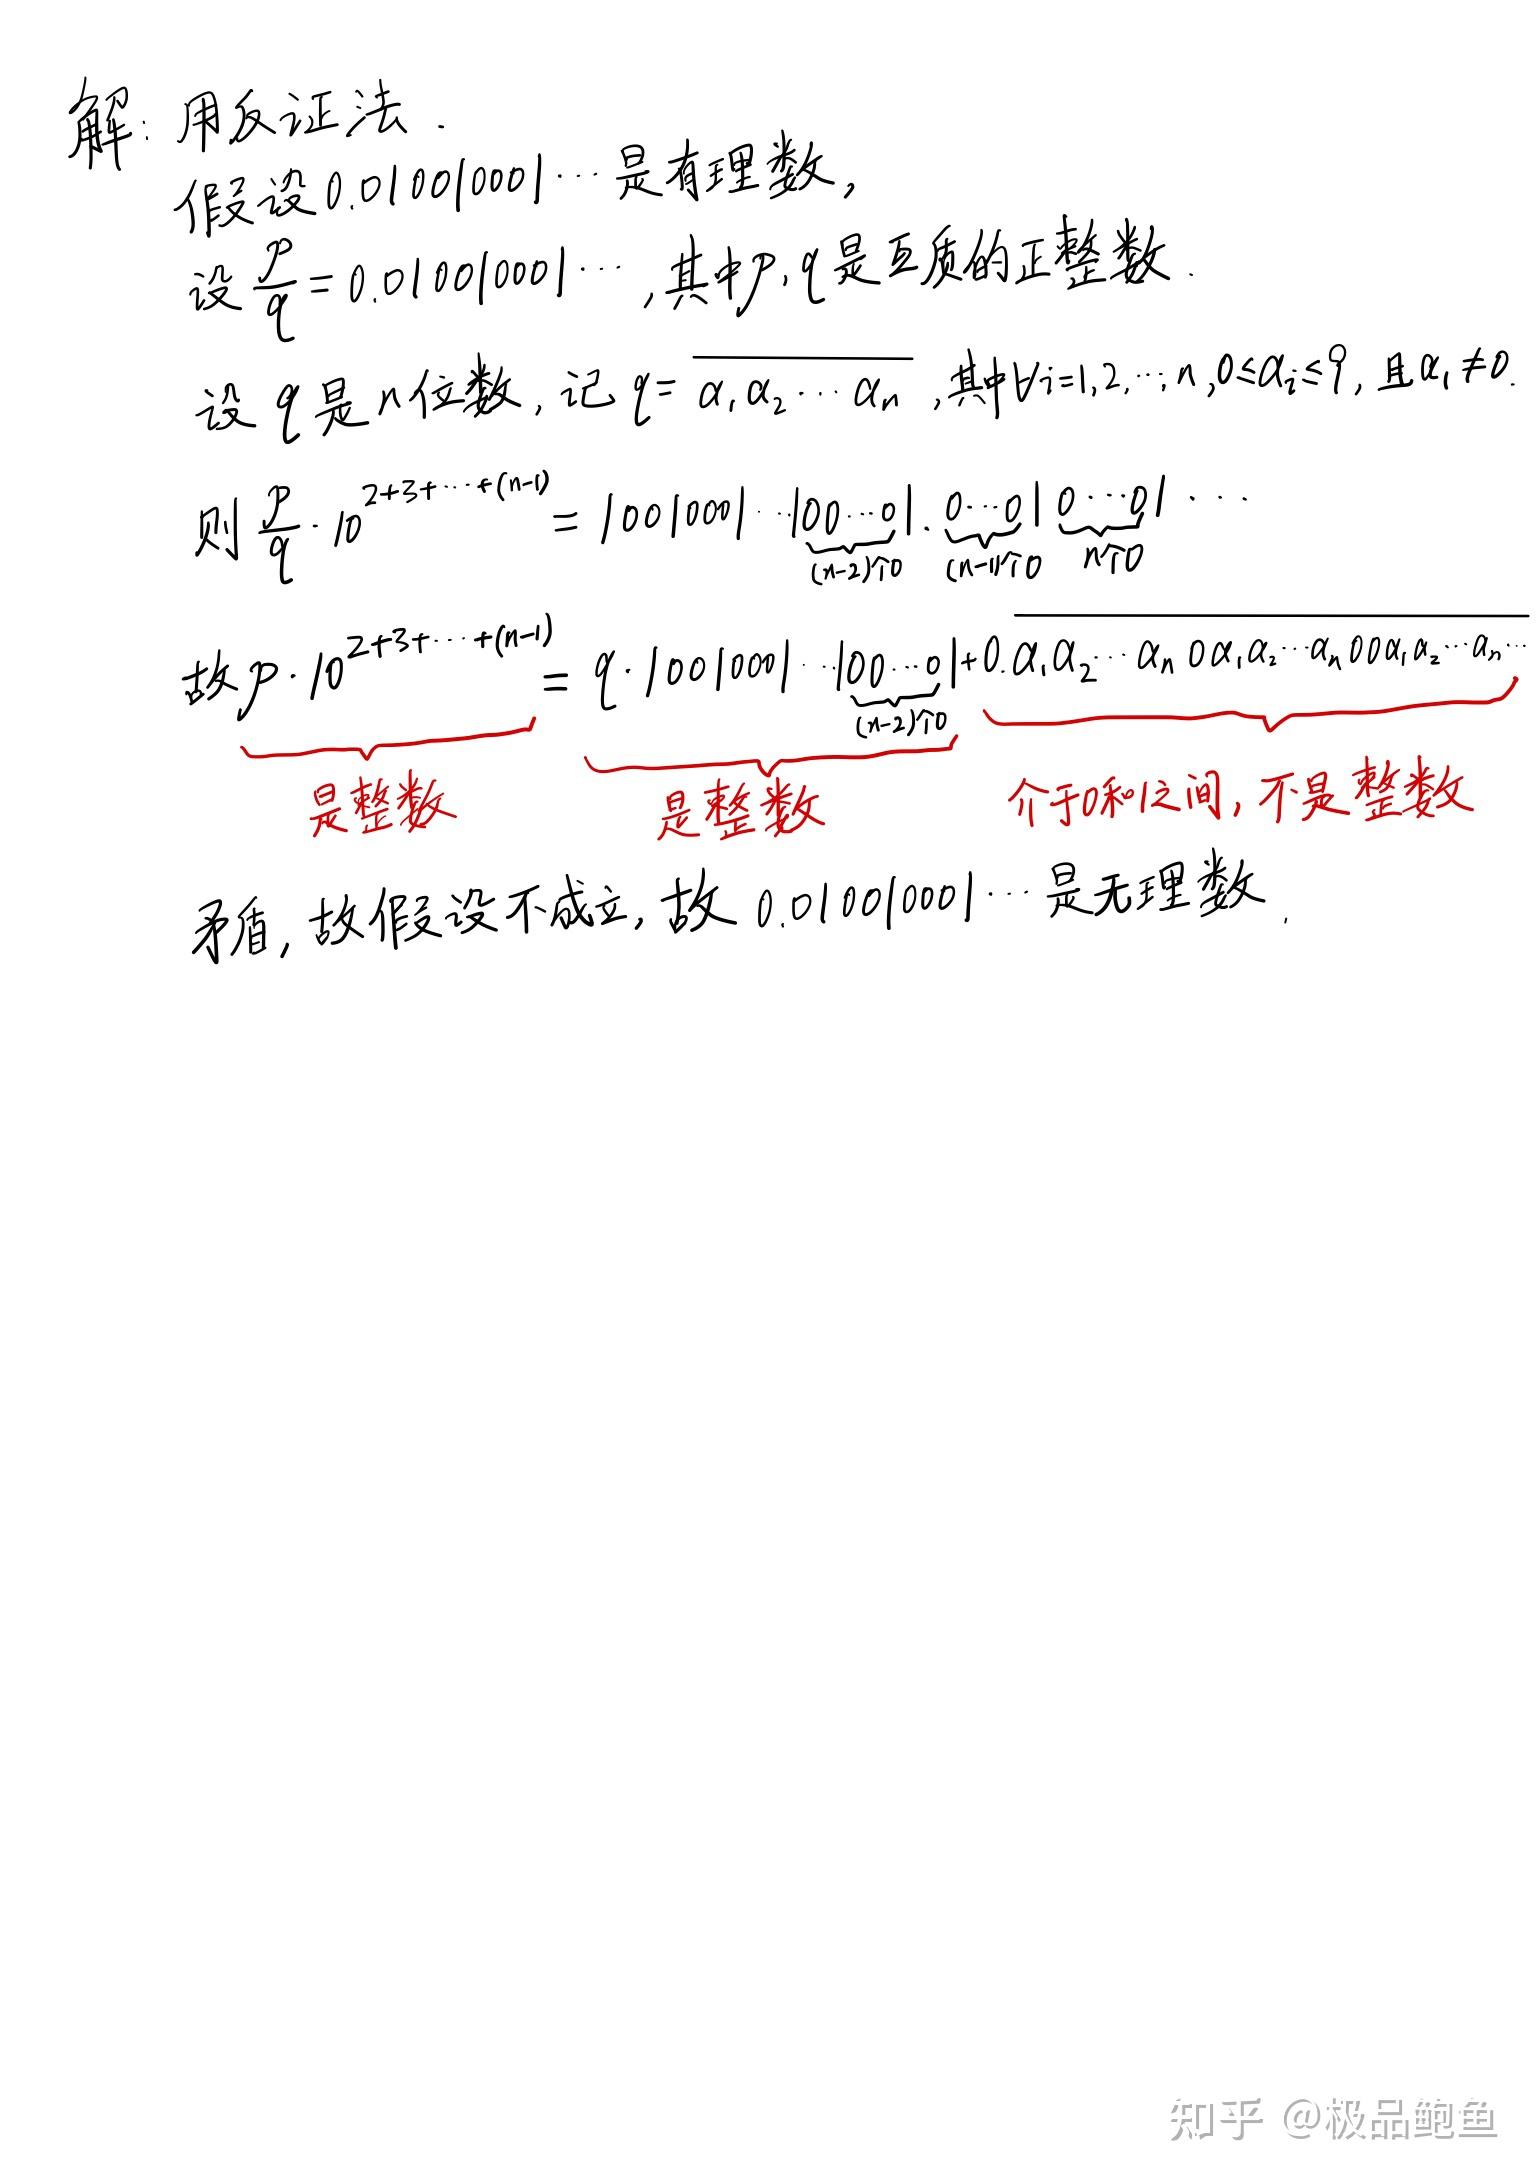 解: 用反证法.
假设0.010010001…是有理数,
设 p/q = 0.010010001…, 其中p, q是互质的正整数.
设 q 是 n 位数, 记 q = \overline{a₁a₂…aₙ}, 其中∀i=1,2,…,n, 0≤aᵢ≤9, 且 a₁≠0.
则 p/q · 10^{2+3+…+(n-1)} = 10010001…1\underbrace{00…0}_{(n-2)个0}1.\underbrace{0…0}_{(n-1)个0}1\underbrace{0…0}_{n个0}1…
故 p·10^{2+3+…+(n-1)} = q·10010001…1\underbrace{00…0}_{(n-2)个0}1+0.\overline{a₁a₂…aₙ0a₁a₂…aₙ00a₁a₂…aₙ…}
是整数 是整数 介于0和1之间, 不是整数
矛盾, 故假设不成立, 故 0.010010001…是无理数.
知乎 @极品鲍鱼